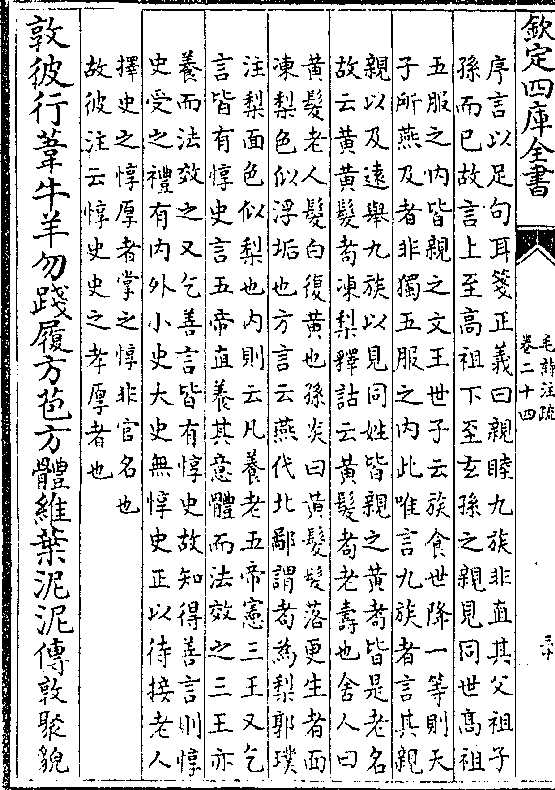 欽定四庫全書
毛詩注疏
卷二十四
序言以足句耳箋正義曰親睦九族非直其父祖子
孫而已故言上至高祖下至玄孫之親見同世高祖
五服之内皆親之文王世子云族食世降一等則天
子所燕及者非獨五服之内此唯言九族者言其親
親以及遠舉九族以見同姓皆親之黄耇皆是老名
故云黄黄髮耇凍梨釋詁云黄髮耇老壽也舍人曰
黄髮老人髮白復黄也孫炎曰黄髮髮落更生者面
凍梨色似浮垢也方言云燕代北鄙謂耇為梨郭璞
注梨面色似梨也内則云凡養老五帝憲三王又乞
言皆有惇史言五帝直養其意體而法效之三王亦
養而法效之又乞善言皆有惇史故知得善言則惇
史受之禮有内外小史大史無惇史正以待接老人
擇史之惇厚者掌之惇非官名也
故彼注云惇史史之孝厚者也
敦彼行葦牛羊勿踐履方苞方體維葉泥泥傳敦聚貌